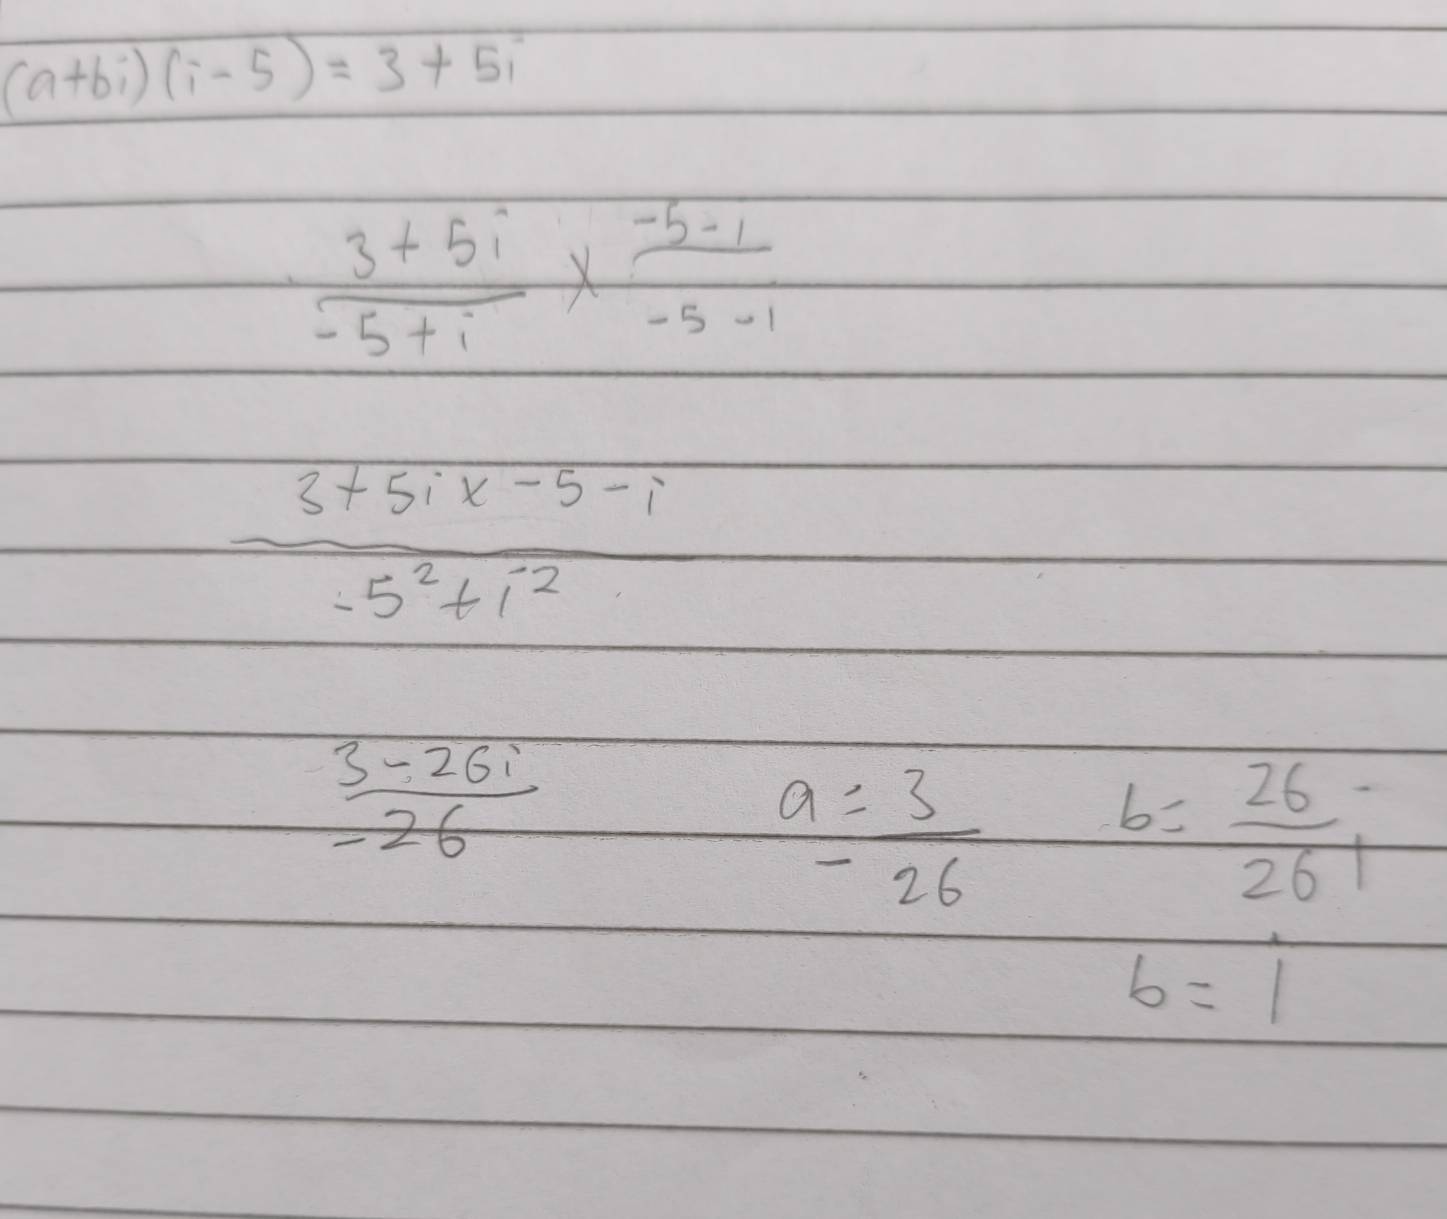 (a+bi)(i-5) = 3 + 5i
3 + 5i / -5 + i x -5 - i / -5 - i
3 + 5i x -5 - i / -5² + i²
3 - 26i / -26 a = 3 / - 26 b = 26 / 26
b = i